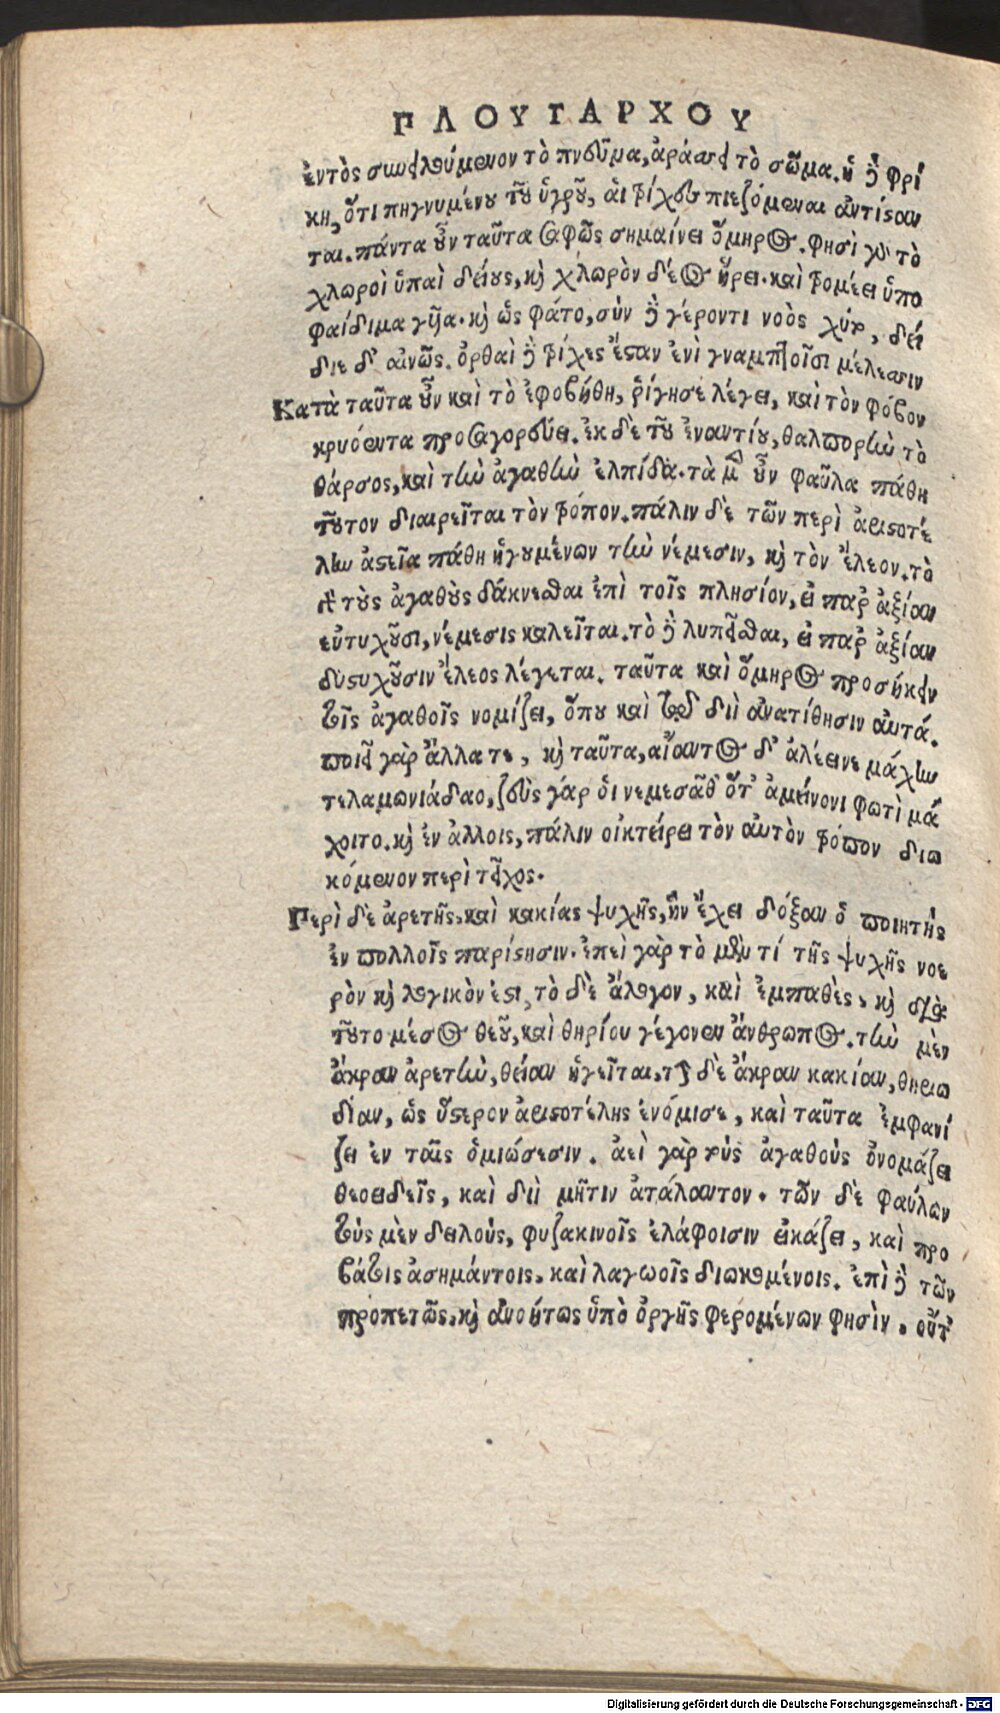 ΠΛΟΥΤΑΡΧΟΥ
ἐντὸς συνειλούμενον τὸ πνεῦμα, ἀράσσει τὸ σῶμα. ἡ δὲ φρί
κη, ὅτι πηγνυμένου τοῦ ὑγροῦ, αἱ τρίχες πιεζόμεναι ἀντίσταν
ται. πάντα οὖν ταῦτα σαφῶς σημαίνει ὅμηρος. φησὶ γὰρ τὸ
χλωροὶ ὑπαὶ δείους, καὶ χλωρὸν δέος ᾕρει. καὶ τρομέει ὑπο
φαίδιμα γυῖα. καὶ ὣς φάτο, σὺν δὲ γέροντι νοὸς χύτ, δεί
διε δ' αἰνῶς. ὀρθαὶ δὲ τρίχες ἔσαν ἐνὶ γναμπτοῖσι μέλεσσιν
Κατὰ ταῦτα οὖν καὶ τὸ ἐφοβήθη, ῥίγησε λέγει, καὶ τὸν φόβον
κρυόεντα προσαγορεύει. ἐκ δὲ τοῦ ἐναντίου, θαλπορὴν τὸ
θάρσος, καὶ τὴν ἀγαθὴν ἐλπίδα. τὰ μὲν οὖν φαῦλα πάθη
τοῦτον διαιρεῖται τὸν τρόπον. πάλιν δὲ τῶν περὶ ἀριστοτέ
λην ἀστεῖα πάθη ἡγουμένων τὴν νέμεσιν, καὶ τὸν ἔλεον. τὸ
γὰρ τοὺς ἀγαθοὺς δάκνεσθαι ἐπὶ τοῖς πλησίον, εἰ παρ ἀξίαν
εὐτυχοῦσι, νέμεσις καλεῖται. τὸ δὲ λυπεῖσθαι, εἰ παρ ἀξίαν
δυστυχοῦσιν ἔλεος λέγεται. ταῦτα καὶ ὅμηρος προσήκειν
τοῖς ἀγαθοῖς νομίζει, ὅπου καὶ τῷ διὶ ἀνατίθησιν αὐτά.
ποιεῖ γὰρ ἄλλα τε, καὶ ταῦτα, αἴαντος δ' ἀλέεινε μάχην
τελαμωνιάδαο, ζεὺς γάρ οἱ νεμεσᾶθ' ὅτ' ἀμείνονι φωτὶ μά
χοιτο. καὶ ἐν ἄλλοις, πάλιν οἰκτείρει τὸν αὐτὸν τρόπον διω
κόμενον περὶ τεῖχος.
Περὶ δὲ ἀρετῆς, καὶ κακίας ψυχῆς, ἣν ἔχει δόξαν ὁ ποιητὴς
ἐν πολλοῖς παρίστησιν. ἐπεὶ γὰρ τὸ μὲν τί τῆς ψυχῆς νοε
ρὸν καὶ λογικὸν ἐστι, τὸ δὲ ἄλογον, καὶ ἐμπαθὲς, καὶ διὰ
τοῦτο μέσος θεοῦ, καὶ θηρίου γέγονεν ἄνθρωπος. τὴν μὲν
ἄκραν ἀρετὴν, θείαν ἡγεῖται, τὴν δὲ ἄκραν κακίαν, θηριω
δίαν, ὡς ὕστερον ἀριστοτέλης ἐνόμισε, καὶ ταῦτα ἐμφανί
ζει ἐν ταῖς ὁμιώσεσιν. ἀεὶ γὰρ τοὺς ἀγαθοὺς ὀνομάζει
θεοειδεῖς, καὶ διὶ μῆτιν ἀτάλαντον. τῶν δὲ φαύλων
τοὺς μὲν δειλοὺς, φυζακινοῖς ἐλάφοισιν εἰκάζει, καὶ προ
βάτοις ἀσημάντοις, καὶ λαγωοῖς διωκομένοις. ἐπὶ δὲ τῶν
προπετῶς, καὶ ἀνοήτως ὑπὸ ὀργῆς φερομένων φησὶν, οὔτ'
Digitalisierung gefördert durch die Deutsche Forschungsgemeinschaft - DFG